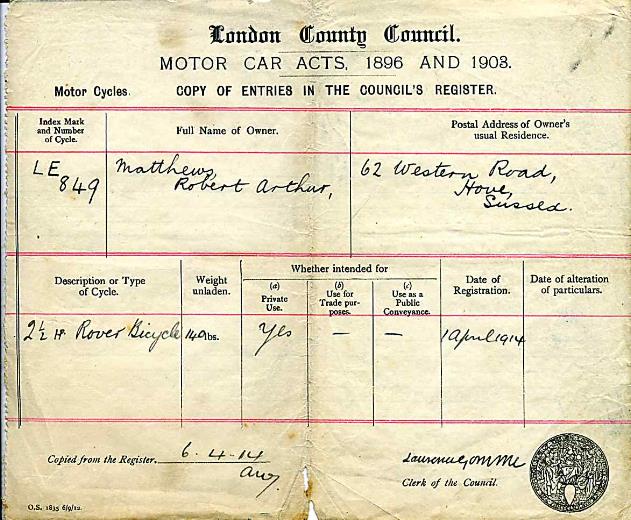 London County Council.
MOTOR CAR ACTS, 1896 AND 1903.
Motor Cycles. COPY OF ENTRIES IN THE COUNCIL'S REGISTER.
Index Mark
and Number
of Cycle.
Full Name of Owner.
Postal Address of Owner's
usual Residence.
LE
849
Matthews,
Robert Arthur,
62 Western Road,
Hove,
Sussex.
Description or Type
of Cycle.
Weight
unladen.
Whether intended for
(a)
Private
Use.
(b)
Use for
Trade pur-
poses.
(c)
Use as a
Public
Conveyance.
Date of
Registration.
Date of alteration
of particulars.
2½ H. Rover Bicycle
140 lbs.
Yes
—
—
1 April 1914
Copied from the Register.
6.4.14
Laurence Gomme
Clerk of the Council.
O.S. 1835 6/9/12.